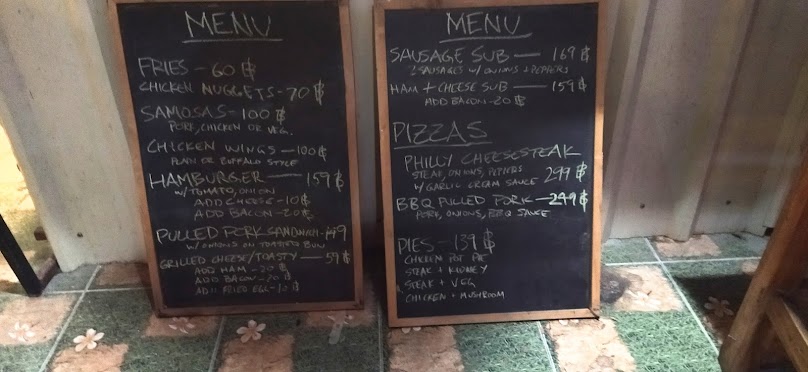 MENU
FRIES - 60 ฿
CHICKEN NUGGETS - 70 ฿
SAMOSAS - 100 ฿
PORK, CHICKEN OR VEG.
CHICKEN WINGS - 100 ฿
PLAIN OR BUFFALO STYLE
HAMBURGER - 159 ฿
W/ TOMATO, ONION
ADD CHEESE - 10 ฿
ADD BACON - 20 ฿
PULLED PORK SANDWICH - 149
W/ ONIONS ON TOASTED BUN
GRILLED CHEESE/TOASTY - 59 ฿
ADD HAM - 20 ฿
ADD BACON - 20 ฿
ADD FRIED EGG - 10 ฿
MENU
SAUSAGE SUB - 169 ฿
2 SAUSAGES W/ ONIONS + PEPPERS
HAM + CHEESE SUB - 159 ฿
ADD BACON - 20 ฿
PIZZAS
PHILLY CHEESESTEAK
STEAK, ONIONS, PEPPERS 299 ฿
W/ GARLIC CREAM SAUCE
BBQ PULLED PORK - 299 ฿
PORK, ONIONS, BBQ SAUCE
PIES - 139 ฿
CHICKEN POT PIE
STEAK + KIDNEY
STEAK + VEG
CHICKEN + MUSHROOM